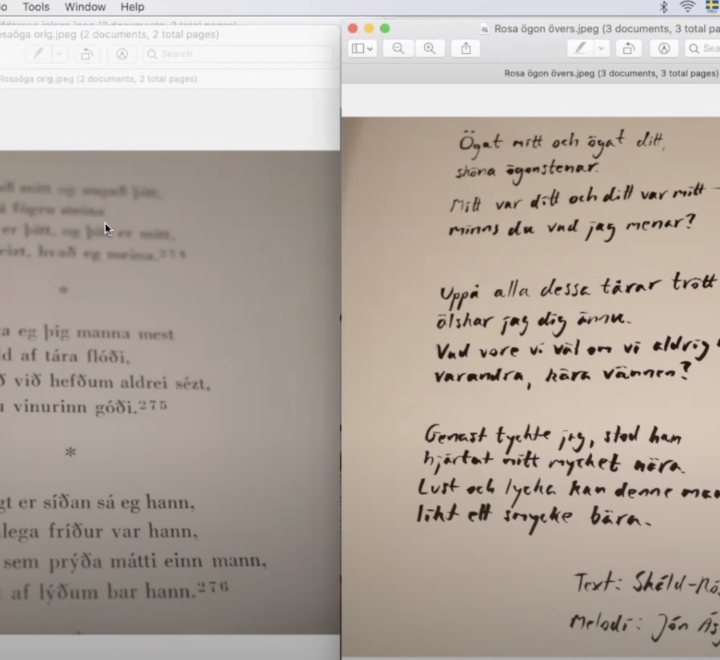 Tools Window Help
saöga orig.jpeg (2 documents, 2 total pages)
Search
Rosaöga orig.jpeg (2 documents, 2 total pages)
er þitt, og þitt er mitt,
hvað eg meina.274
*
a eg þig manna mest
d af tára flóði,
ð við hefðum aldrei sézt,
u vinurinn góði.275
*
gt er síðan sá eg hann,
lega fríður var hann,
sem prýða mátti einn mann,
t af lýðum bar hann.276
Rosa ögon övers.jpeg (3 documents, 3 total pa
Sea
Rosa ögon övers.jpeg (3 documents, 3 total pages)
Ögat mitt och ögat ditt,
sköna ögonstenar.
Mitt var ditt och ditt var mitt –
minns du vad jag menar?
Uppå alla dessa tårar trött
älskar jag dig ännu.
Vad vore vi väl om vi aldrig
varandra, kära vännen?
Genast tyckte jag, stod han
hjärtat mitt mycket nära.
Lust och lycka kan denne man
likt ett smycke bära.
Text: Skáld-Rós
Melodi: Jón Ás